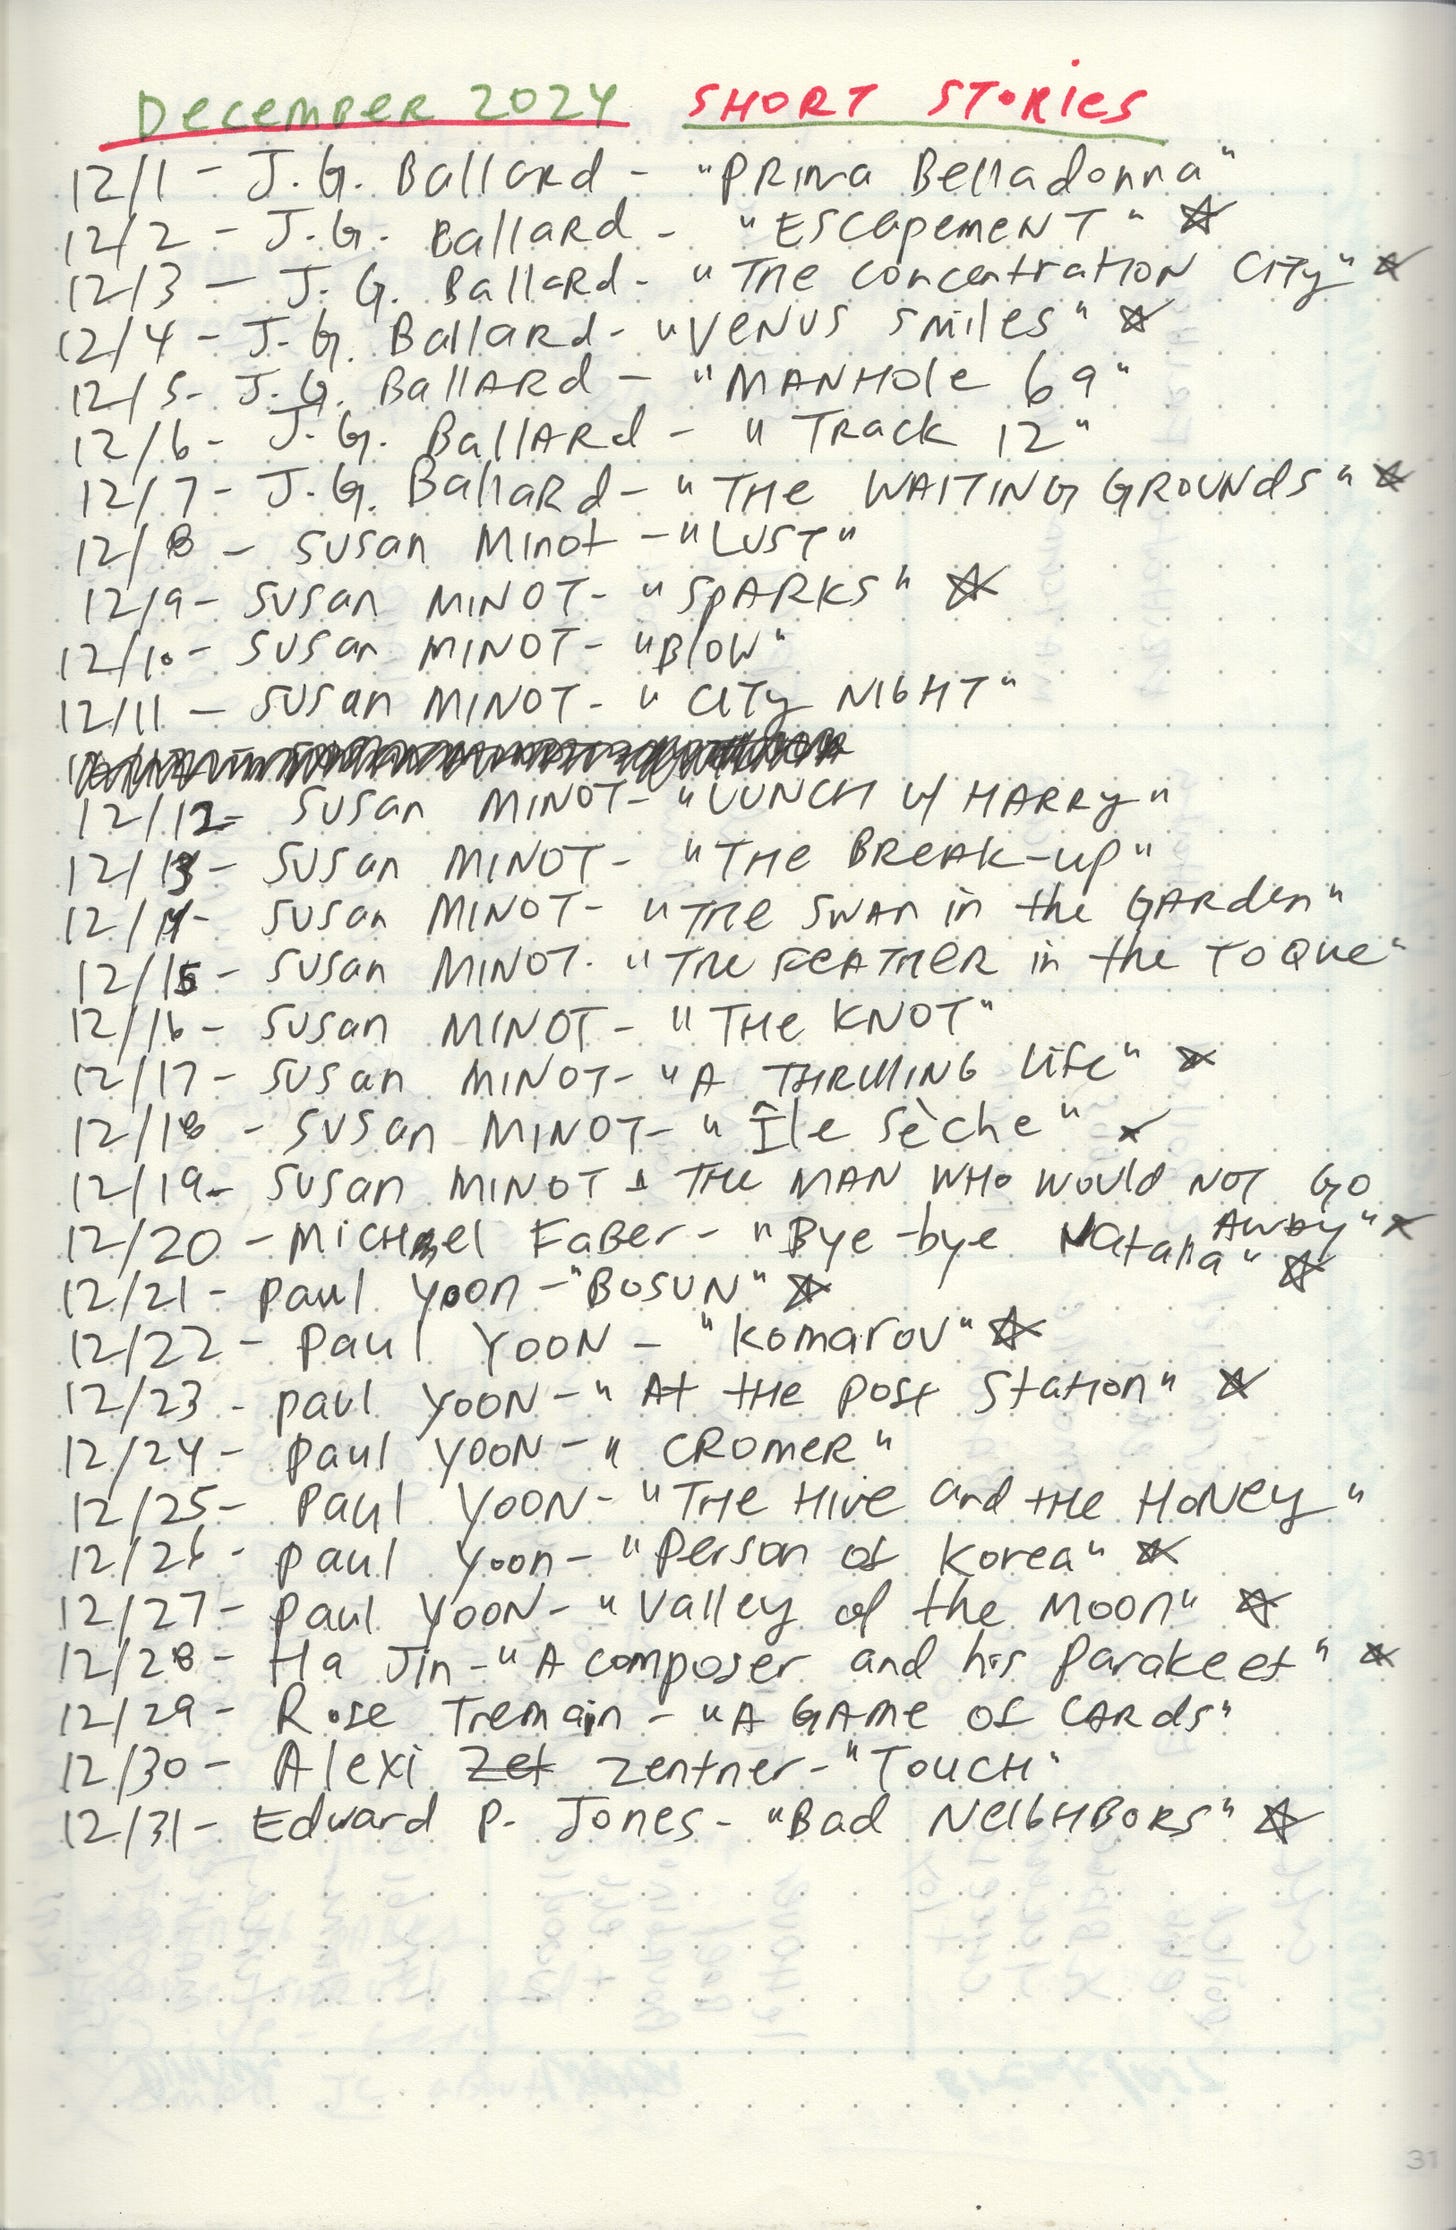 DeCeMBER 2024 SHORT STORies
12/1 - J.G. BallaRd - "PRIMA Belladonna"
12/2 - J.G. BallaRd - "EscApemeNT" ☆
12/3 - J.G. BallaRd - "THe concentratioN CiTy" ☆
12/4 - J.G. BallaRd - "VeNUS smiles" ☆
12/5 - J.G. BallARd - "MANHole 69"
12/6 - J.G. BallARd - "TRack 12"
12/7 - J.G. BallaRd - "THe WAITING GROUNds" ☆
12/8 - SUSan Minot - "LUST"
12/9 - SUSan MINOT - "SpARKS" ☆
12/10 - SUSan MINOT - "BlOW"
12/11 - SUSan MINOT - "CITy NIGHT"
12/12 - SUSan MINOT - "LUNCH w/ HARRy"
12/13 - SUSan MINOT - "THe BReAK-up"
12/14 - SUSan MINOT - "THe SWAn in the GARden"
12/15 - SUSan MINOT - "THe FeATHER in the TOQue"
12/16 - SUSan MINOT - "THe KNOT"
12/17 - SUSan MINOT - "A THRIllING life" ☆
12/18 - SUSan MINOT - "Île sèche" ☆
12/19 - SUSan MINOT - "THe MAN WHo Would NOT GO
AWAy" ☆
12/20 - MicHael FaBer - "Bye-bye Natalia" ☆
12/21 - paul Yoon - "BOSUN" ☆
12/22 - paul YOON - "komarov" ☆
12/23 - paul YOON - "At tHe post station" ☆
12/24 - paul YOON - "CROmeR"
12/25 - Paul YOON - "THe Hive and tHe HoNey"
12/26 - paul Yoon - "person of korea" ☆
12/27 - paul YOON - "valley of the MOON" ☆
12/28 - Ha Jin - "A composer and his Parakeet" ☆
12/29 - Rose Tremain - "A GAMe OF CARds"
12/30 - Alexi Zet Zentner - "TOUCH"
12/31 - Edward P. Jones - "Bad NeIGHBORS" ☆
31